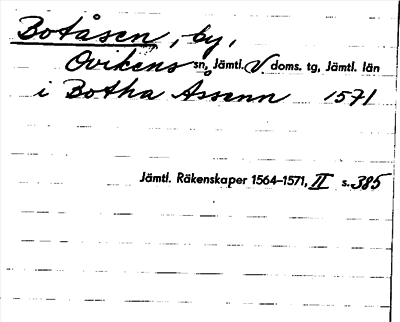 Botåsen, by,
Ovikens sn, Jämtl. V. doms. tg, Jämtl. län
i Botha Åssenn 1571
Jämtl. Räkenskaper 1564–1571, II s. 385